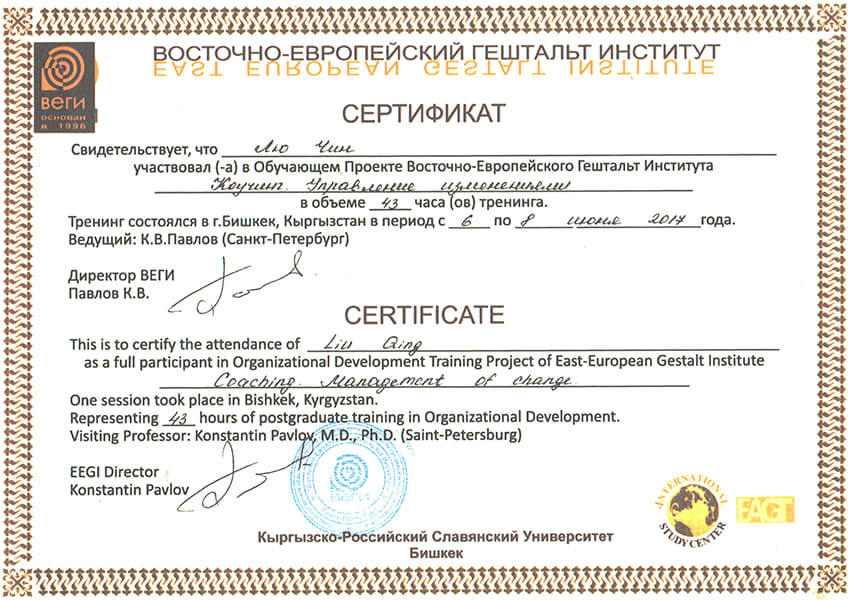 ВОСТОЧНО-ЕВРОПЕЙСКИЙ ГЕШТАЛЬТ ИНСТИТУТ
EAST EUROPEAN GESTALT INSTITUTE
ВЕГИ
основан
в 1996
СЕРТИФИКАТ
Свидетельствует, что Лю Чин
участвовал (-а) в Обучающем Проекте Восточно-Европейского Гештальт Института
Коучинг. Управление изменениями
в объеме 43 часа (ов) тренинга.
Тренинг состоялся в г.Бишкек, Кыргызстан в период с 6 по 8 июня 2017 года.
Ведущий: К.В.Павлов (Санкт-Петербург)
Директор ВЕГИ
Павлов К.В.
CERTIFICATE
This is to certify the attendance of Liu Qing
as a full participant in Organizational Development Training Project of East-European Gestalt Institute
Coaching. Management of change.
One session took place in Bishkek, Kyrgyzstan.
Representing 43 hours of postgraduate training in Organizational Development.
Visiting Professor: Konstantin Pavlov, M.D., Ph.D. (Saint-Petersburg)
EEGI Director
Konstantin Pavlov
ВЕГИ
INTERNATIONAL
STUDY CENTER
FAGT
Кыргызско-Российский Славянский Университет
Бишкек